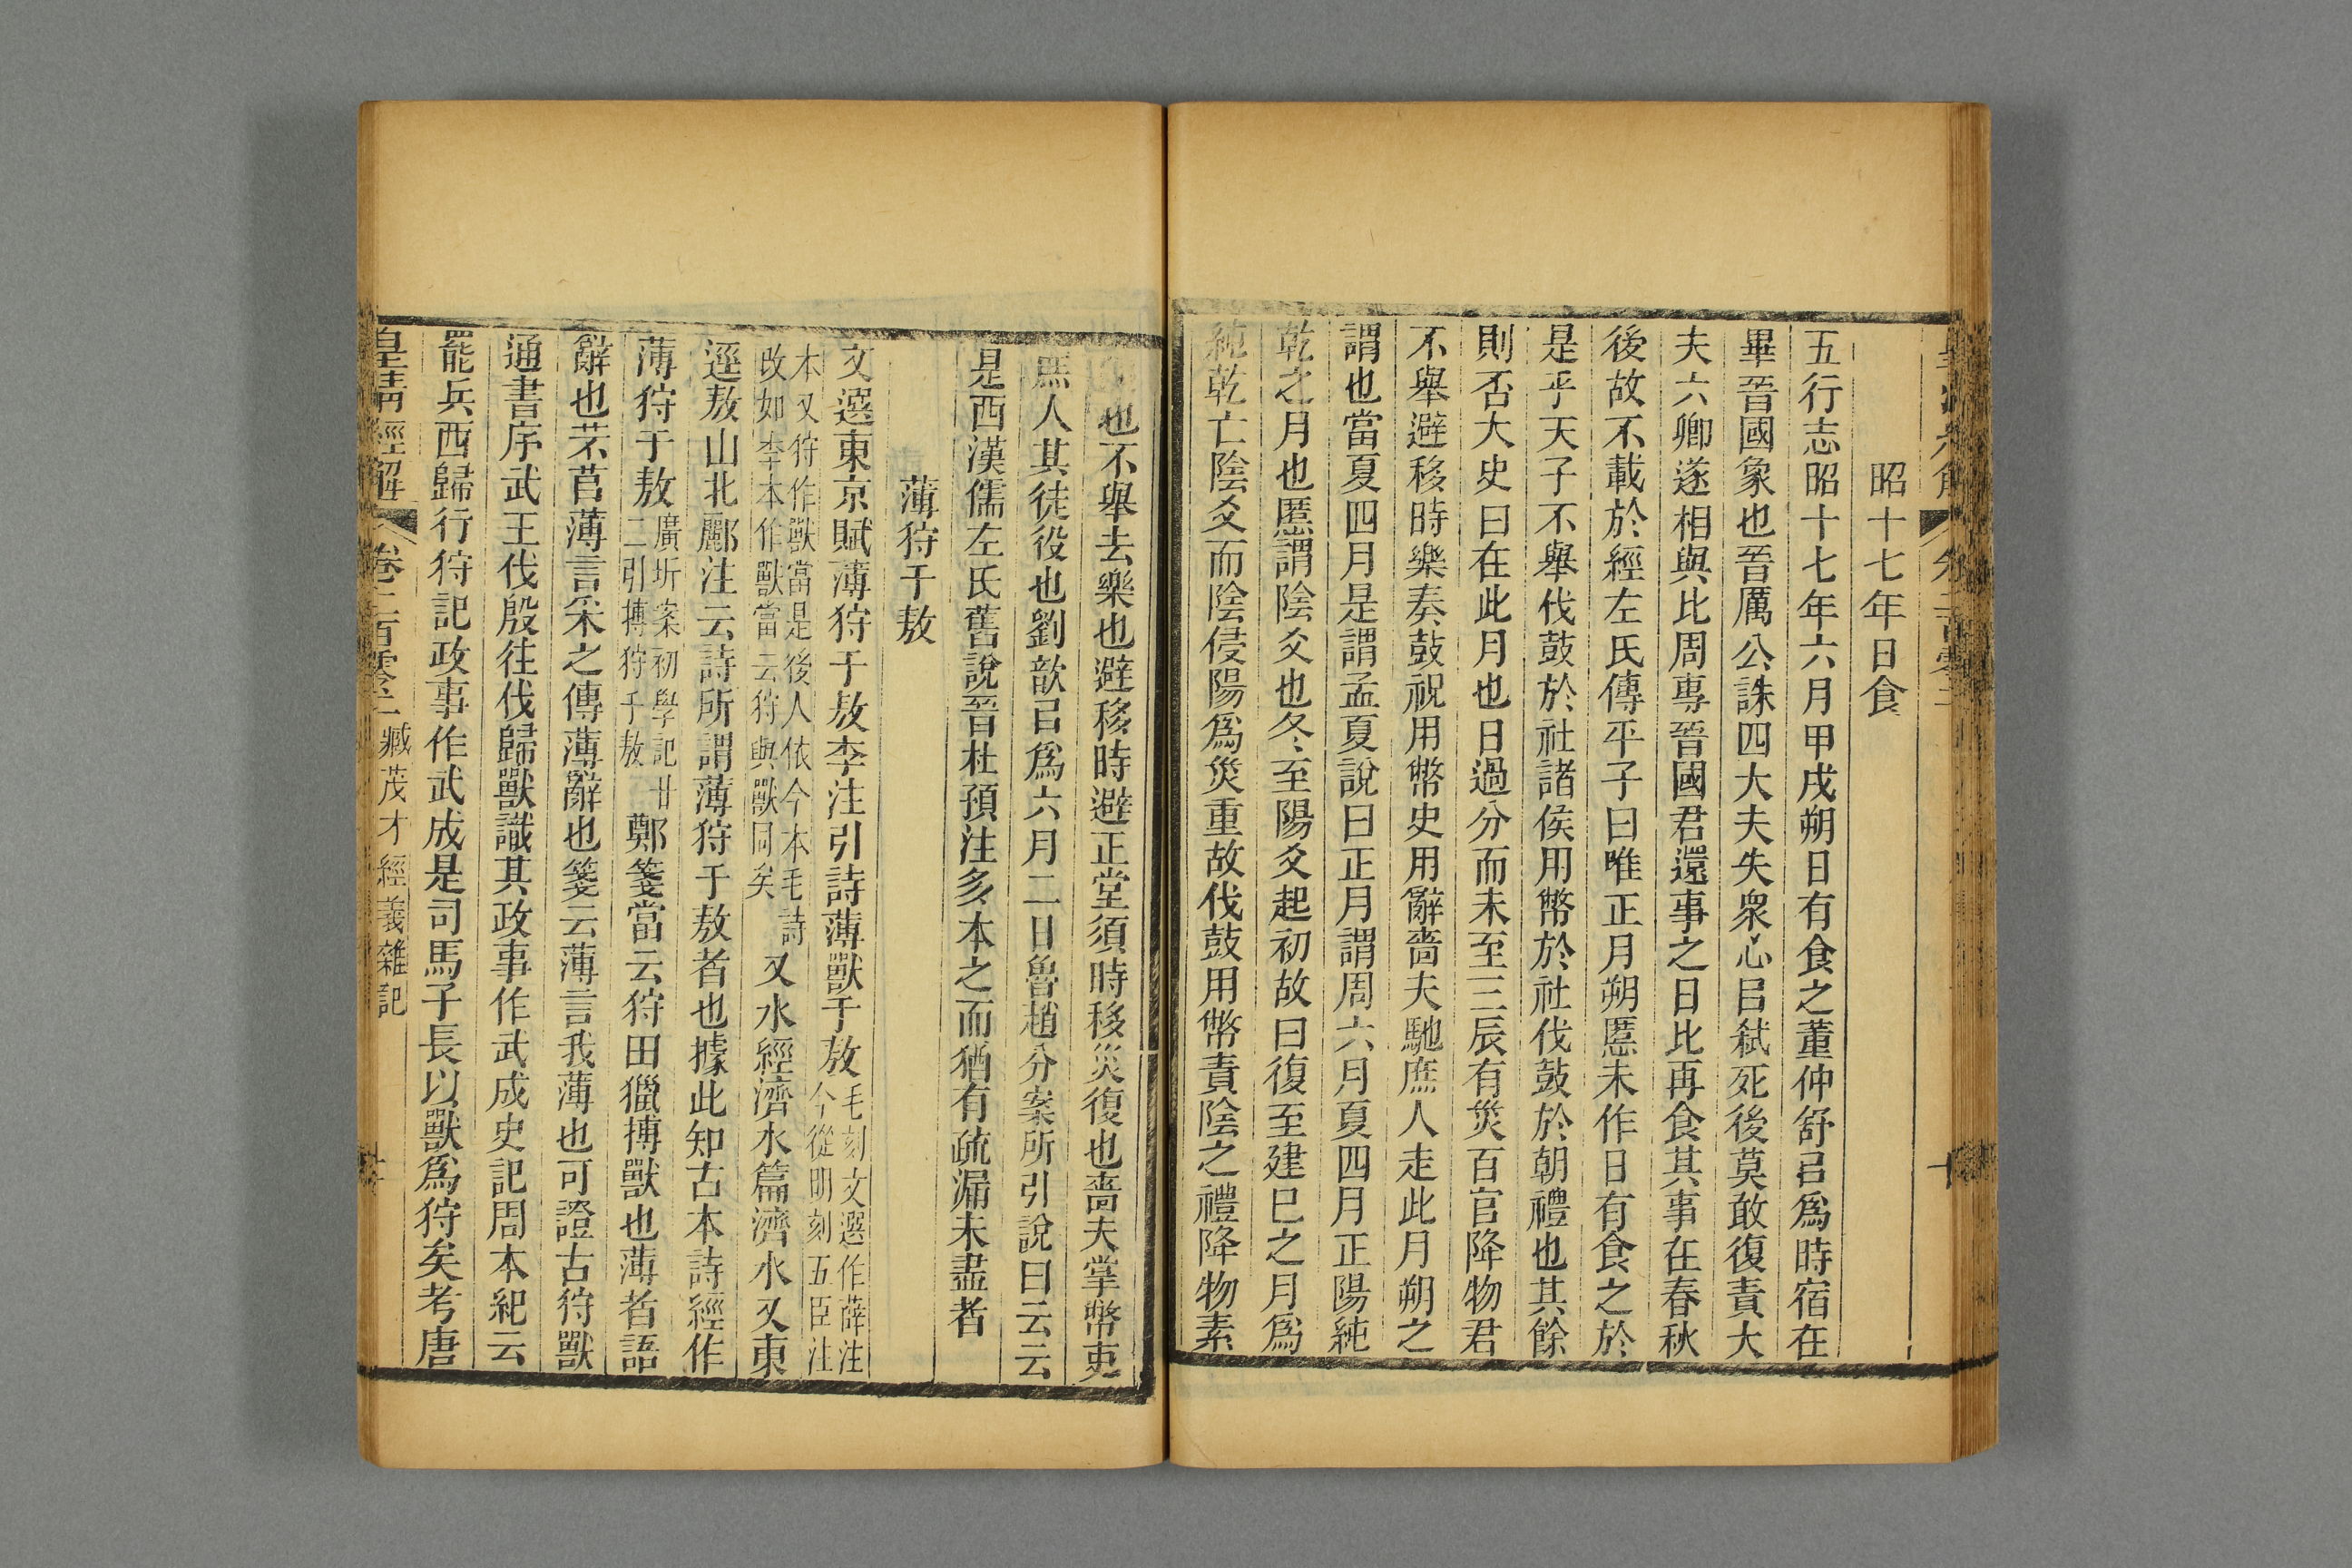 昭十七年日食
五行志昭十七年六月甲戌朔日有食之董仲舒㠯爲時宿在
畢晉國象也晉厲公誅四大夫失衆心㠯弑死後莫敢復責大
夫六卿遂相與比周專晉國君還事之日比再食其事在春秋
後故不載於經左氏傳平子曰唯正月朔慝未作日有食之於
是乎天子不舉伐鼓於社諸侯用幣於社伐鼓於朝禮也其餘
則否大史曰在此月也日過分而未至三辰有災百官降物君
不舉避移時樂奏鼓祝用幣史用辭嗇夫馳庶人走此月朔之
謂也當夏四月是謂孟夏說曰正月謂周六月夏四月正陽純
乾之月也慝謂陰爻也冬至陽爻起初故曰復至建巳之月爲
純乾亡陰爻而陰侵陽爲災重故伐鼓用幣責陰之禮降物素
也不舉去樂也避移時避正堂須時移災復也嗇夫掌幣吏
庶人其徒役也劉歆㠯爲六月二日魯趙分案所引說曰云云
是西漢儒左氏舊說晉杜預注多本之而猶有疏漏未盡者
薄狩于敖
文選東京賦薄狩于敖李注引詩薄獸于敖毛刻文選作薛注今從明刻五臣注
本又狩作獸當是後人依今本毛詩改如李本作獸當云狩與獸同矣又水經濟水篇濟水又東
逕敖山北酈注云詩所謂薄狩于敖者也據此知古本詩經作
薄狩于敖廣圻案初學記廿二引搏狩于敖鄭箋當云狩田獵搏獸也薄者語
辭也芣苢薄言采之傳薄辭也箋云薄言我薄也可證古狩獸
通書序武王伐殷往伐歸獸識其政事作武成史記周本紀云
罷兵西歸行狩記政事作武成是司馬子長以獸爲狩矣考唐
皇清經解 卷二百零二 臧茂才經義雜記